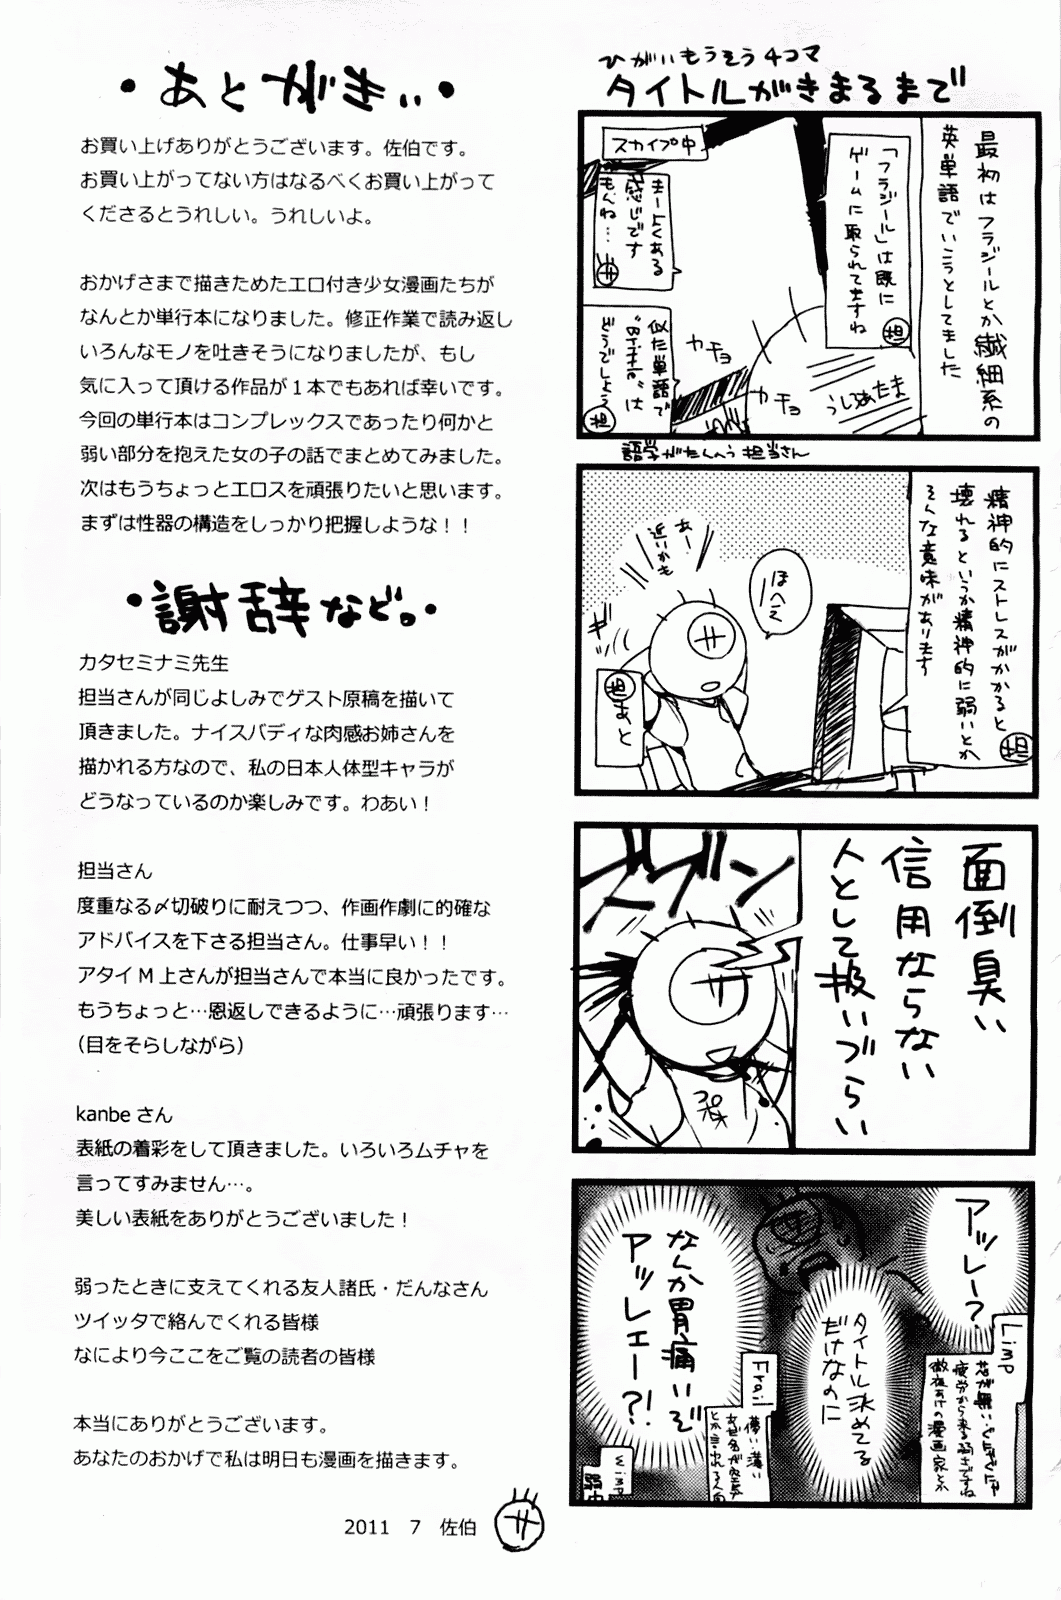 ・あとがきぃ・
お買い上げありがとうございます。佐伯です。
お買い上がってない方はなるべくお買い上がって
くださるとうれしい。うれしいよ。
おかげさまで描きためたエロ付き少女漫画たちが
なんとか単行本になりました。修正作業で読み返し
いろんなモノを吐きそうになりましたが、もし
気に入って頂ける作品が１本でもあれば幸いです。
今回の単行本はコンプレックスであったり何かと
弱い部分を抱えた女の子の話でまとめてみました。
次はもうちょっとエロスを頑張りたいと思います。
まずは性器の構造をしっかり把握しような！！
・謝辞など。・
カタセミナミ先生
担当さんが同じよしみでゲスト原稿を描いて
頂きました。ナイスバディな肉感お姉さんを
描かれる方なので、私の日本人体型キャラが
どうなっているのか楽しみです。わあい！
担当さん
度重なる〆切破りに耐えつつ、作画作劇に的確な
アドバイスを下さる担当さん。仕事早い！！
アタイＭ上さんが担当さんで本当に良かったです。
もうちょっと…恩返しできるように…頑張ります…
（目をそらしながら）
kanbe さん
表紙の着彩をして頂きました。いろいろムチャを
言ってすみません…。
美しい表紙をありがとうございました！
弱ったときに支えてくれる友人諸氏・だんなさん
ツイッタで絡んでくれる皆様
なにより今ここをご覧の読者の皆様
本当にありがとうございます。
あなたのおかげで私は明日も漫画を描きます。
2011　7　佐伯
サ
ひがいもうそう4コマ
タイトルがきまるまで
最初はフラジールとか繊細系の
英単語でいこうとしてました
「フラジール」は既に
ゲームに取られてますね
担
スカイプ中
まーよくある
感じです
もんね…
サ
似た単語で
"Brittle"は
どうでしょう
担
カチョ
カチョ
うしろあたま
語学がたんのう 担当さん
精神的にストレスがかかると
壊れるというか精神的に弱いとか
そんな意味があります
担
ほへぇ
あー！
近いかも
サ
担 あと
面倒臭い
信用ならない
人として扱いづらい
ズブン
サ
アッレー？
タイトル決めてる
だけなのに
なんか胃痛いぞ
アッレェー？！
Limp
芯が無い・ぐにゃぐにゃ
疲労から来る弱さですね
徹夜あけの漫画家とか
Frail
儚い・薄い
wimp